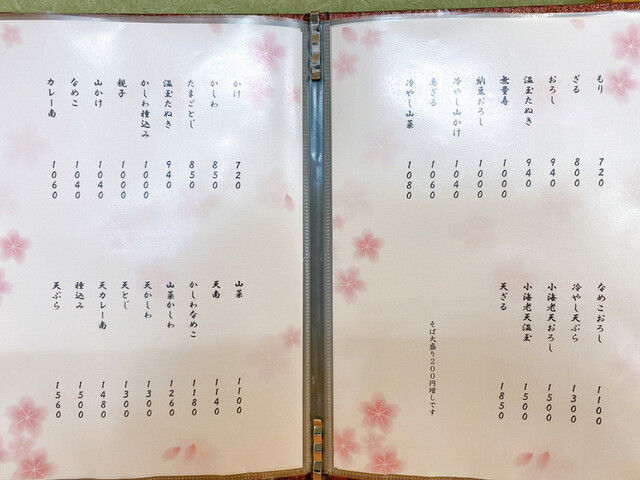 もり 720
ざる 800
おろし 940
温玉たぬき 940
無量寿 1000
納豆おろし 1000
冷やし山かけ 1040
鳥ざる 1060
冷やし山菜 1080
なめこおろし 1100
冷やし天ぷら 1300
小海老天おろし 1500
小海老天温玉 1500
天ざる 1850
そば大盛り200円増しです
かけ 720
かしわ 850
たまごとじ 850
温玉たぬき 940
かしわ種込み 1000
親子 1000
山かけ 1040
なめこ 1040
カレー南 1060
山菜 1100
天南 1140
かしわなめこ 1180
山菜かしわ 1260
天かしわ 1300
天とじ 1300
天カレー南 1480
種込み 1500
天ぷら 1560